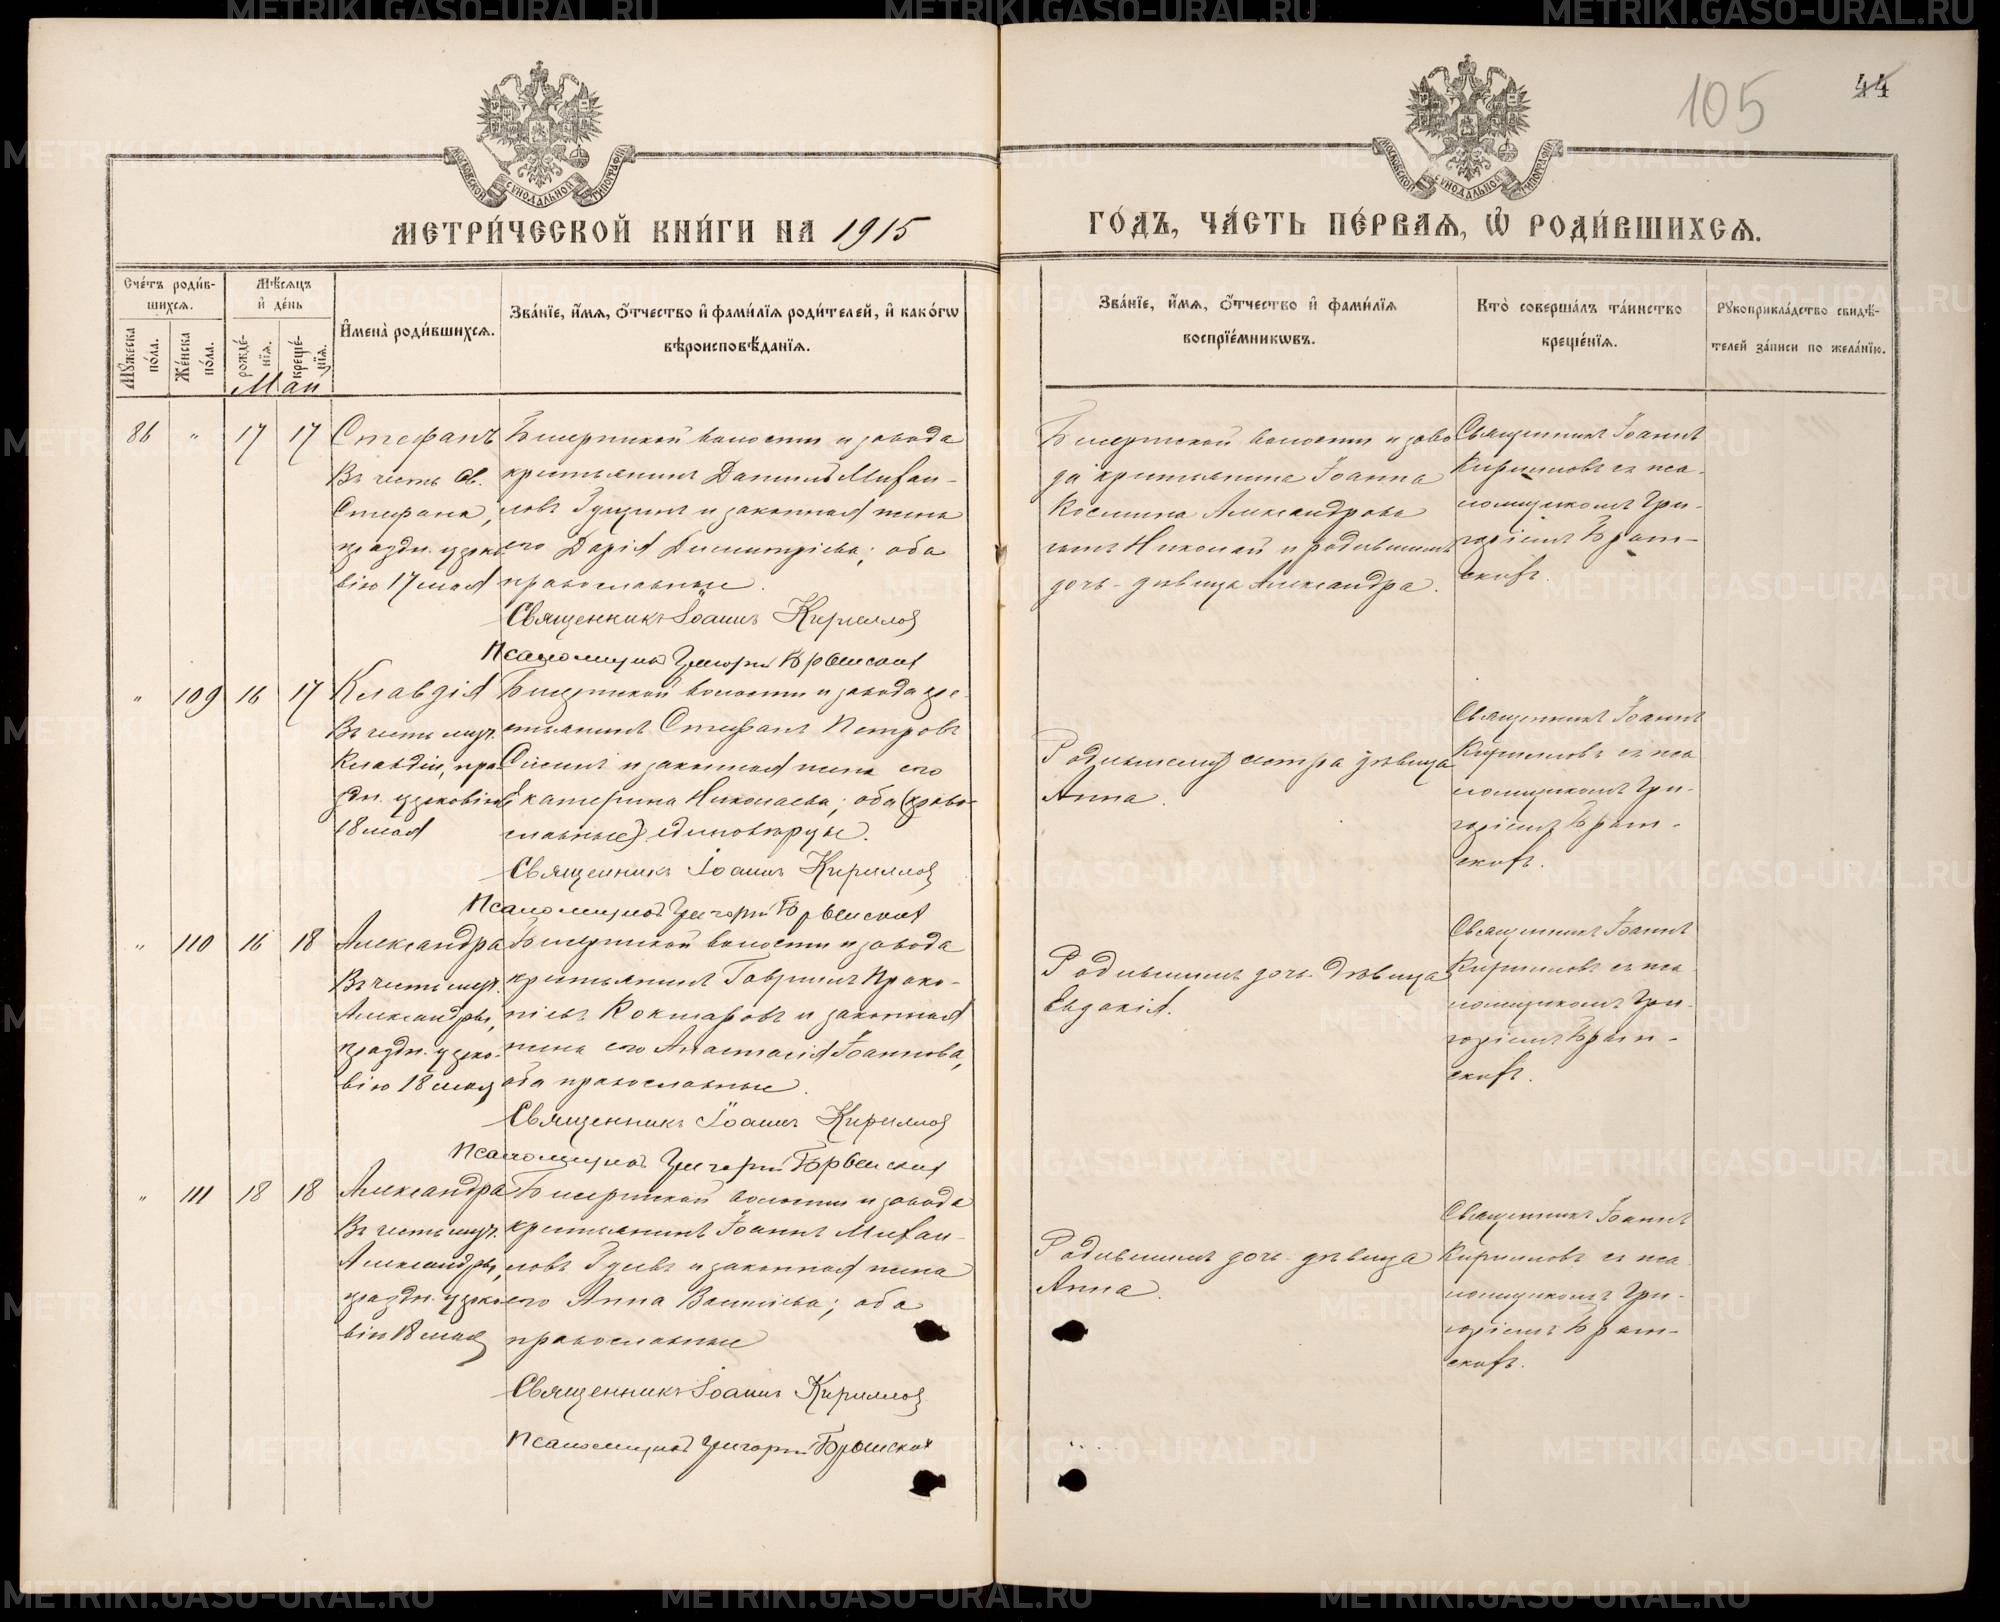 105
44
МОСКОВСКОЙ СѴНОДАЛЬНОЙ ТИПОГРАФІИ
МОСКОВСКОЙ СѴНОДАЛЬНОЙ ТИПОГРАФІИ
МЕТРИ́ЧЕСКОЙ КНИ́ГИ НА 1915
ГО́ДЪ, ЧА́СТЬ ПЕ́РВАѦ, Ѡ҆ РОДИ́ВШИХСѦ.
Сче́тъ роди́в-
шихсѧ.
Мꙋжеска по́ла.
Же́нска по́ла.
Мѣ́сѧцъ
и҆ де́нь
рожде́-
нїѧ.
креще́-
нїѧ.
И҆мена̀ роди́вшихсѧ.
Зва́нїе, и҆́мѧ, ѻ҆́тчество и҆ фами́лїѧ роди́телей, и҆ како́гѡ
вѣроисповѣ́данїѧ.
Зва́нїе, и҆́мѧ, ѻ҆́тчество и҆ фами́лїѧ
воспрїе́мникѡвъ.
Кто̀ соверша́лъ та́инство
креще́нїѧ.
Рꙋкоприкла́дство свидѣ́-
телей за́писи по жела́нїю.
Май
86 " 17 17 Стефанъ
Въ честь Св.
Стефана,
праздн. церко
вію 17 мая
Бисертской волости и завода
крестьянинъ Даніилъ Михаи-
ловъ и законная жена
его Дарія Димитріева; оба
православные.
Священникъ Іоаннъ Кирилловъ
Псаломщикъ Григорій
Бисертской волости и заво
да крестьянина Іоанна
Космина Александрова
сынъ Николай и родившимъ
дочь-дѣвица Александра.
Священникъ Іоаннъ
Кирилловъ съ пса-
ломщикомъ Гри-
горіемъ
скихъ.
" 109 16 17 Клавдія
Въ честь муч.
Клавдіи, пра
здн. церковію
18 мая
Бисертской волости и завода кре-
стьянинъ Стефанъ Петровъ
и законная жена его
Екатерина Николаева; оба (право-
славные) единовѣрцы.
Священникъ Іоаннъ Кирилловъ
Псаломщикъ Григорій
Родившему сестра дѣвица
Анна.
Священникъ Іоаннъ
Кирилловъ съ пса
ломщикомъ Гри-
горіемъ
скихъ.
" 110 16 18 Александра
Въ честь муч.
Александры,
праздн. церко-
вію 18 мая
Бисертской волости и завода
крестьянинъ Гавріилъ Проко-
піевъ Кокшаровъ и законная
жена его Анастасія Іоаннова,
оба православные.
Священникъ Іоаннъ Кирилловъ
Псаломщикъ Григорій
Родившимъ дочь-дѣвица
Евдокія.
Священникъ Іоаннъ
Кирилловъ съ пса
ломщикомъ Гри-
горіемъ
скихъ.
" 111 18 18 Александра
Въ честь муч.
Александры,
праздн. церко
вію 18 мая
Бисертской волости и завода
крестьянинъ Іоаннъ Михаи-
ловъ Гуевъ и законная жена
его Анна Васильева; оба
православные
Священникъ Іоаннъ Кирилловъ
Псаломщикъ Григорій
Родившимъ дочь-дѣвица
Анна.
Священникъ Іоаннъ
Кирилловъ съ пса
ломщикомъ Гри-
горіемъ
скихъ.
METRIKI.GASO-URAL.RU